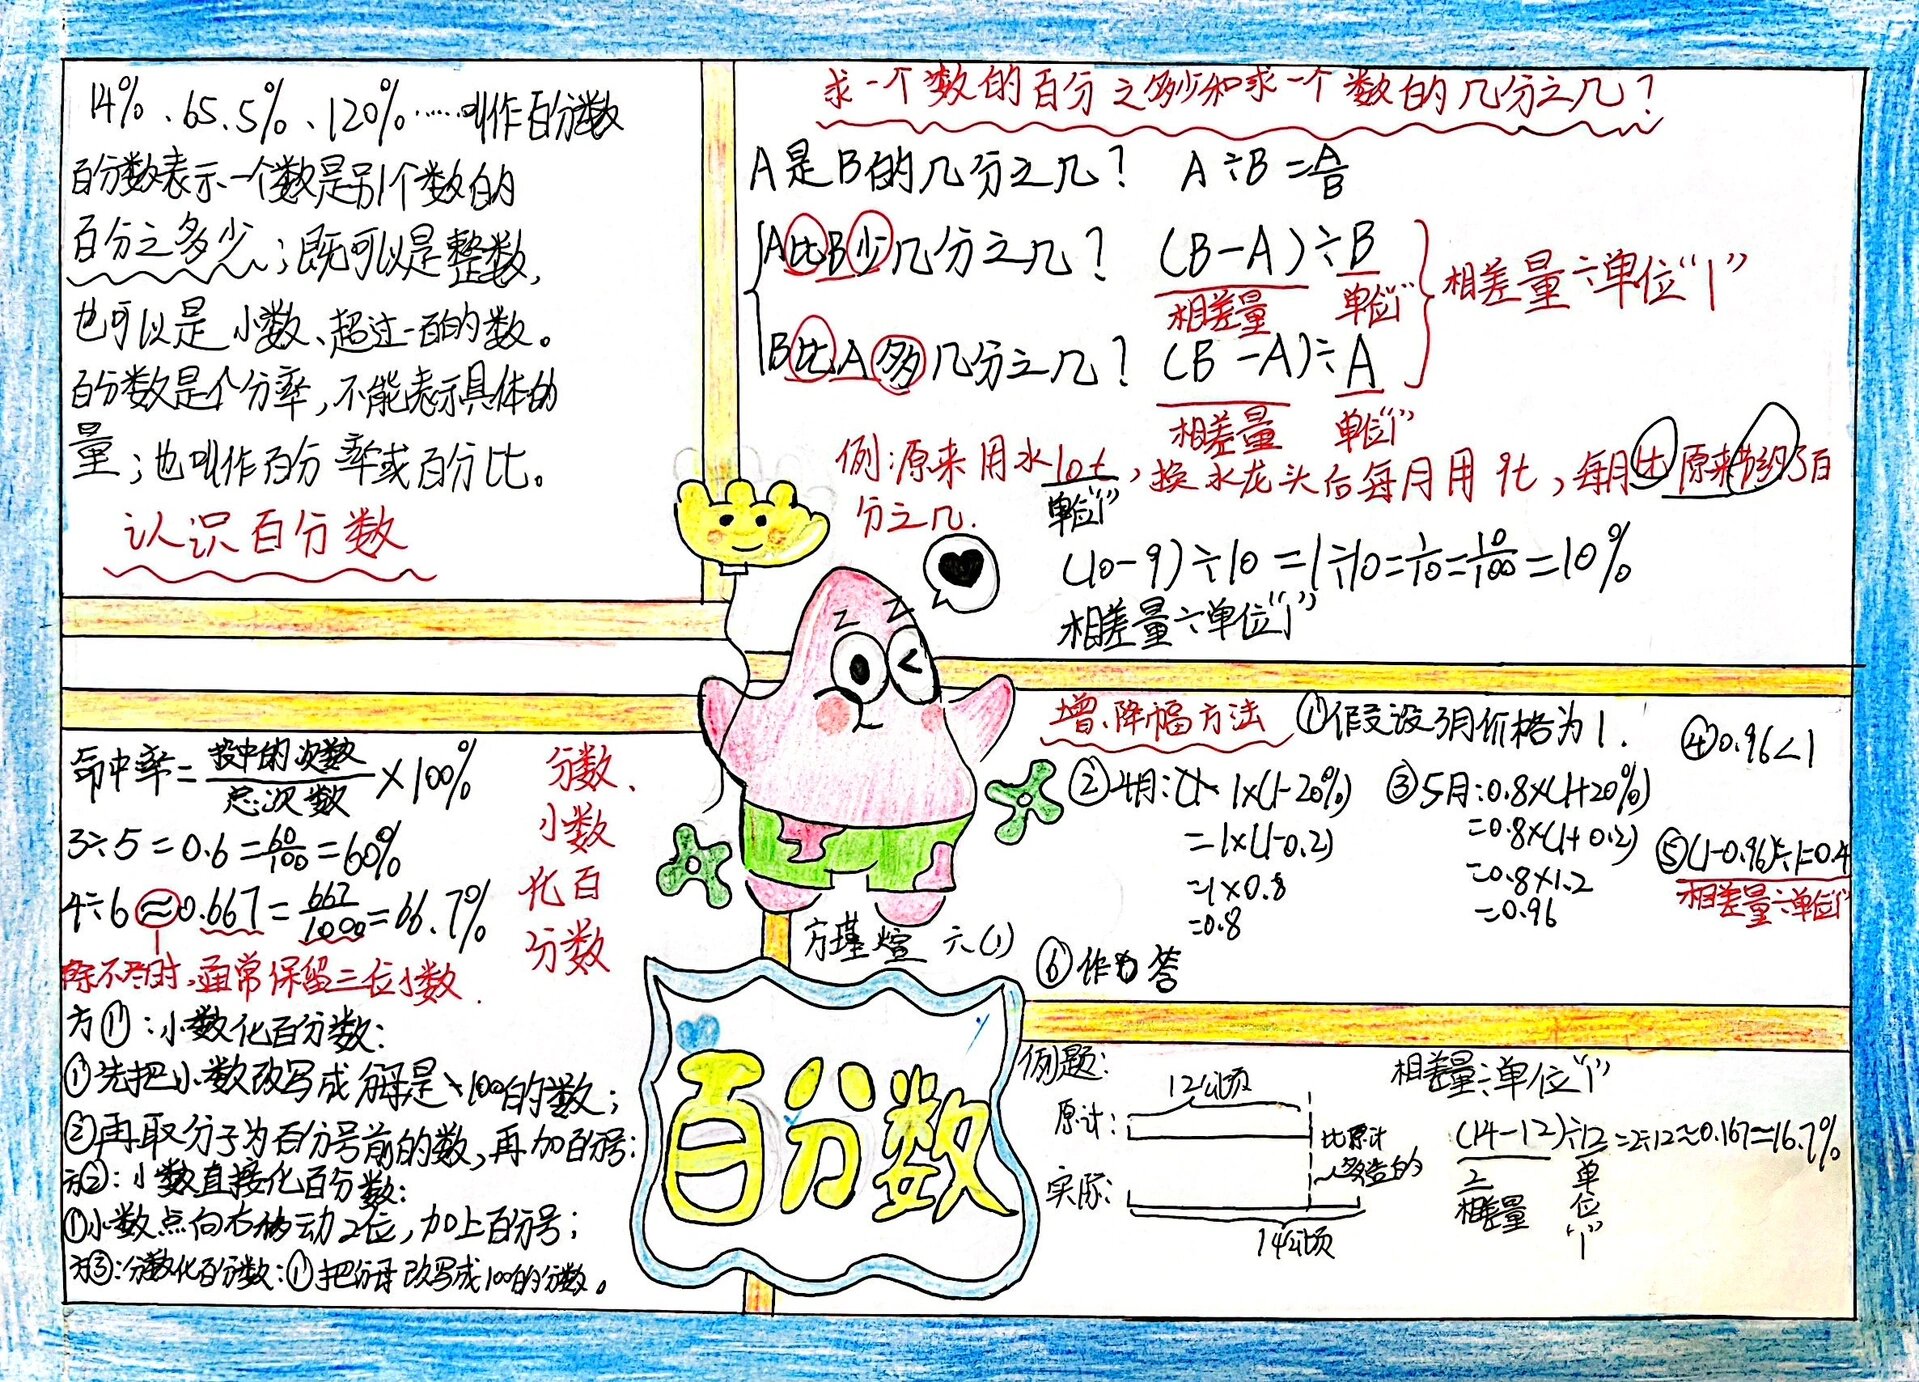 14%、65.5%、120%……叫作百分数
百分数表示一个数是另1个数的
百分之多少；既可以是整数，
也可以是小数、超过一百的数。
百分数是个分率，不能表示具体的
量；也叫作百分率或百分比。
认识百分数
求一个数的百分之多少和求一个数的几分之几？
A是B的几分之几？ A÷B=A/B
A比B少几分之几？ (B-A)÷B
相差量 单位“1”
B比A多几分之几？ (B-A)÷A
相差量 单位“1”
相差量÷单位“1”
例：原来用水10t，换水龙头后每月用9t，每月比原来节约了百
分之几.
单位“1”
(10-9)÷10=1÷10=1/10=10/100=10%
相差量÷单位“1”
命中率=投中的次数/总次数×100%
3÷5=0.6=60/100=60%
4÷6≈0.667=667/1000=66.7%
除不尽时，通常保留三位小数.
分数、
小数
化百
分数
方①：小数化百分数：
①先把小数改写成分母是100的数；
②再取分子为百分号前的数，再加百分号：
方②：小数直接化百分数：
①小数点向右移动2位，加上百分号；
方③：分数化百分数：①把分母改写成100的分数。
增、降幅方法 ①假设3月价格为1.
②4月：1×(1-20%)
=1×(1-0.2)
=1×0.8
=0.8
③5月：0.8×(1+20%)
=0.8×(1+0.2)
=0.8×1.2
=0.96
④0.96<1
⑤(1-0.96)÷1=0.4
相差量÷单位“1”
⑥作答
方瑾煊 六(1)
百分数
例题：
原计：
12公顷
实际：
14公顷
比原计
多造的
相差量÷单位“1”
(14-12)÷12=2÷12≈0.167≈16.7%
2
相差量
单位“1”